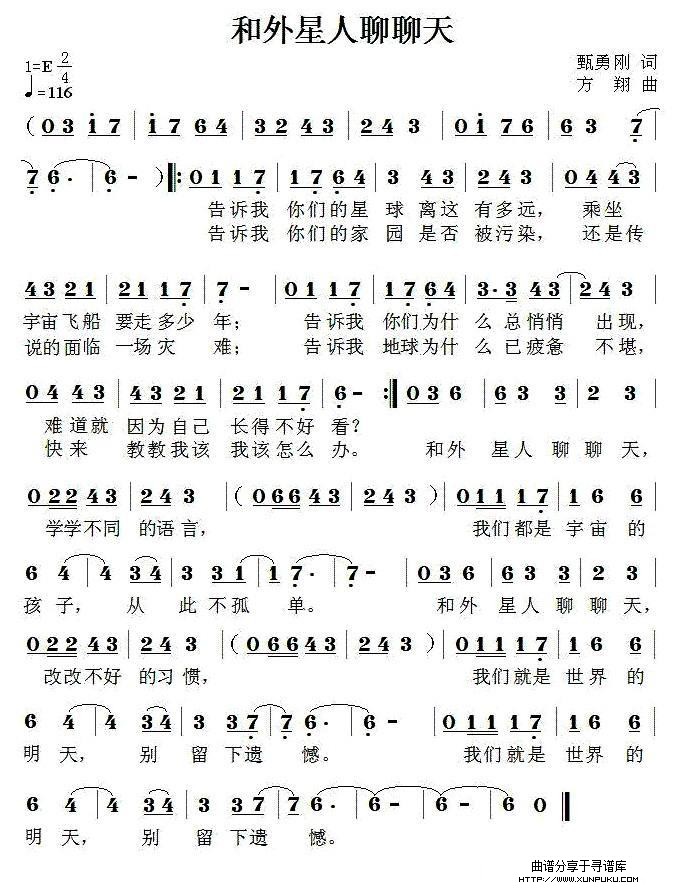 和外星人聊聊天
1=E 2/4
甄勇刚 词
♩=116
方 翔 曲
( 0 3 1 7 | 1 7 6 4 | 3 2 4 3 | 2 4 3 | 0 1 7 6 | 6 3 7 |
7 6 · | 6 - ) ‖: 0 1 1 7 | 1 7 6 4 | 3 4 3 | 2 4 3 | 0 4 4 3 |
告诉我 你们的星 球 离这 有多远， 乘坐
告诉我 你们的家 园 是否 被污染， 还是传
4 3 2 1 | 2 1 1 7 | 7 - | 0 1 1 7 | 1 7 6 4 | 3 · 3 4 3 | 2 4 3 |
宇宙飞船 要走多少 年； 告诉我 你们为什 么 总悄悄 出现，
说的面临 一场灾 难； 告诉我 地球为什 么 已疲惫 不堪，
0 4 4 3 | 4 3 2 1 | 2 1 1 7 | 6 - :‖ 0 3 6 | 6 3 3 | 2 4 3 |
难道就 因为自己 长得不好 看？
快来 教教我该 我该怎么 办。 和外 星人 聊 聊 天，
0 2 2 4 3 | 2 4 3 | ( 0 6 6 4 3 | 2 4 3 ) | 0 1 1 1 7 | 1 6 6 |
学学不同 的语言， 我们都是 宇宙 的
6 4 | 4 3 4 | 3 3 1 | 1 7 · | 7 - | 0 3 6 | 6 3 3 | 2 4 3 |
孩 子， 从 此 不孤 单。 和外 星人 聊 聊 天，
0 2 2 4 3 | 2 4 3 | ( 0 6 6 4 3 | 2 4 3 ) | 0 1 1 1 7 | 1 6 6 |
改改不好 的习 惯， 我们就是 世界 的
6 4 | 4 3 4 | 3 3 7 | 7 6 · | 6 - | 0 1 1 1 7 | 1 6 6 |
明 天， 别 留 下遗 憾。 我们就是 世界 的
6 4 | 4 3 4 | 3 3 7 | 7 6 · | 6 - | 6 - | 6 0 ‖
明 天， 别 留 下遗 憾。
曲谱分享于寻谱库
HTTP://WWW.XUNPUKU.COM